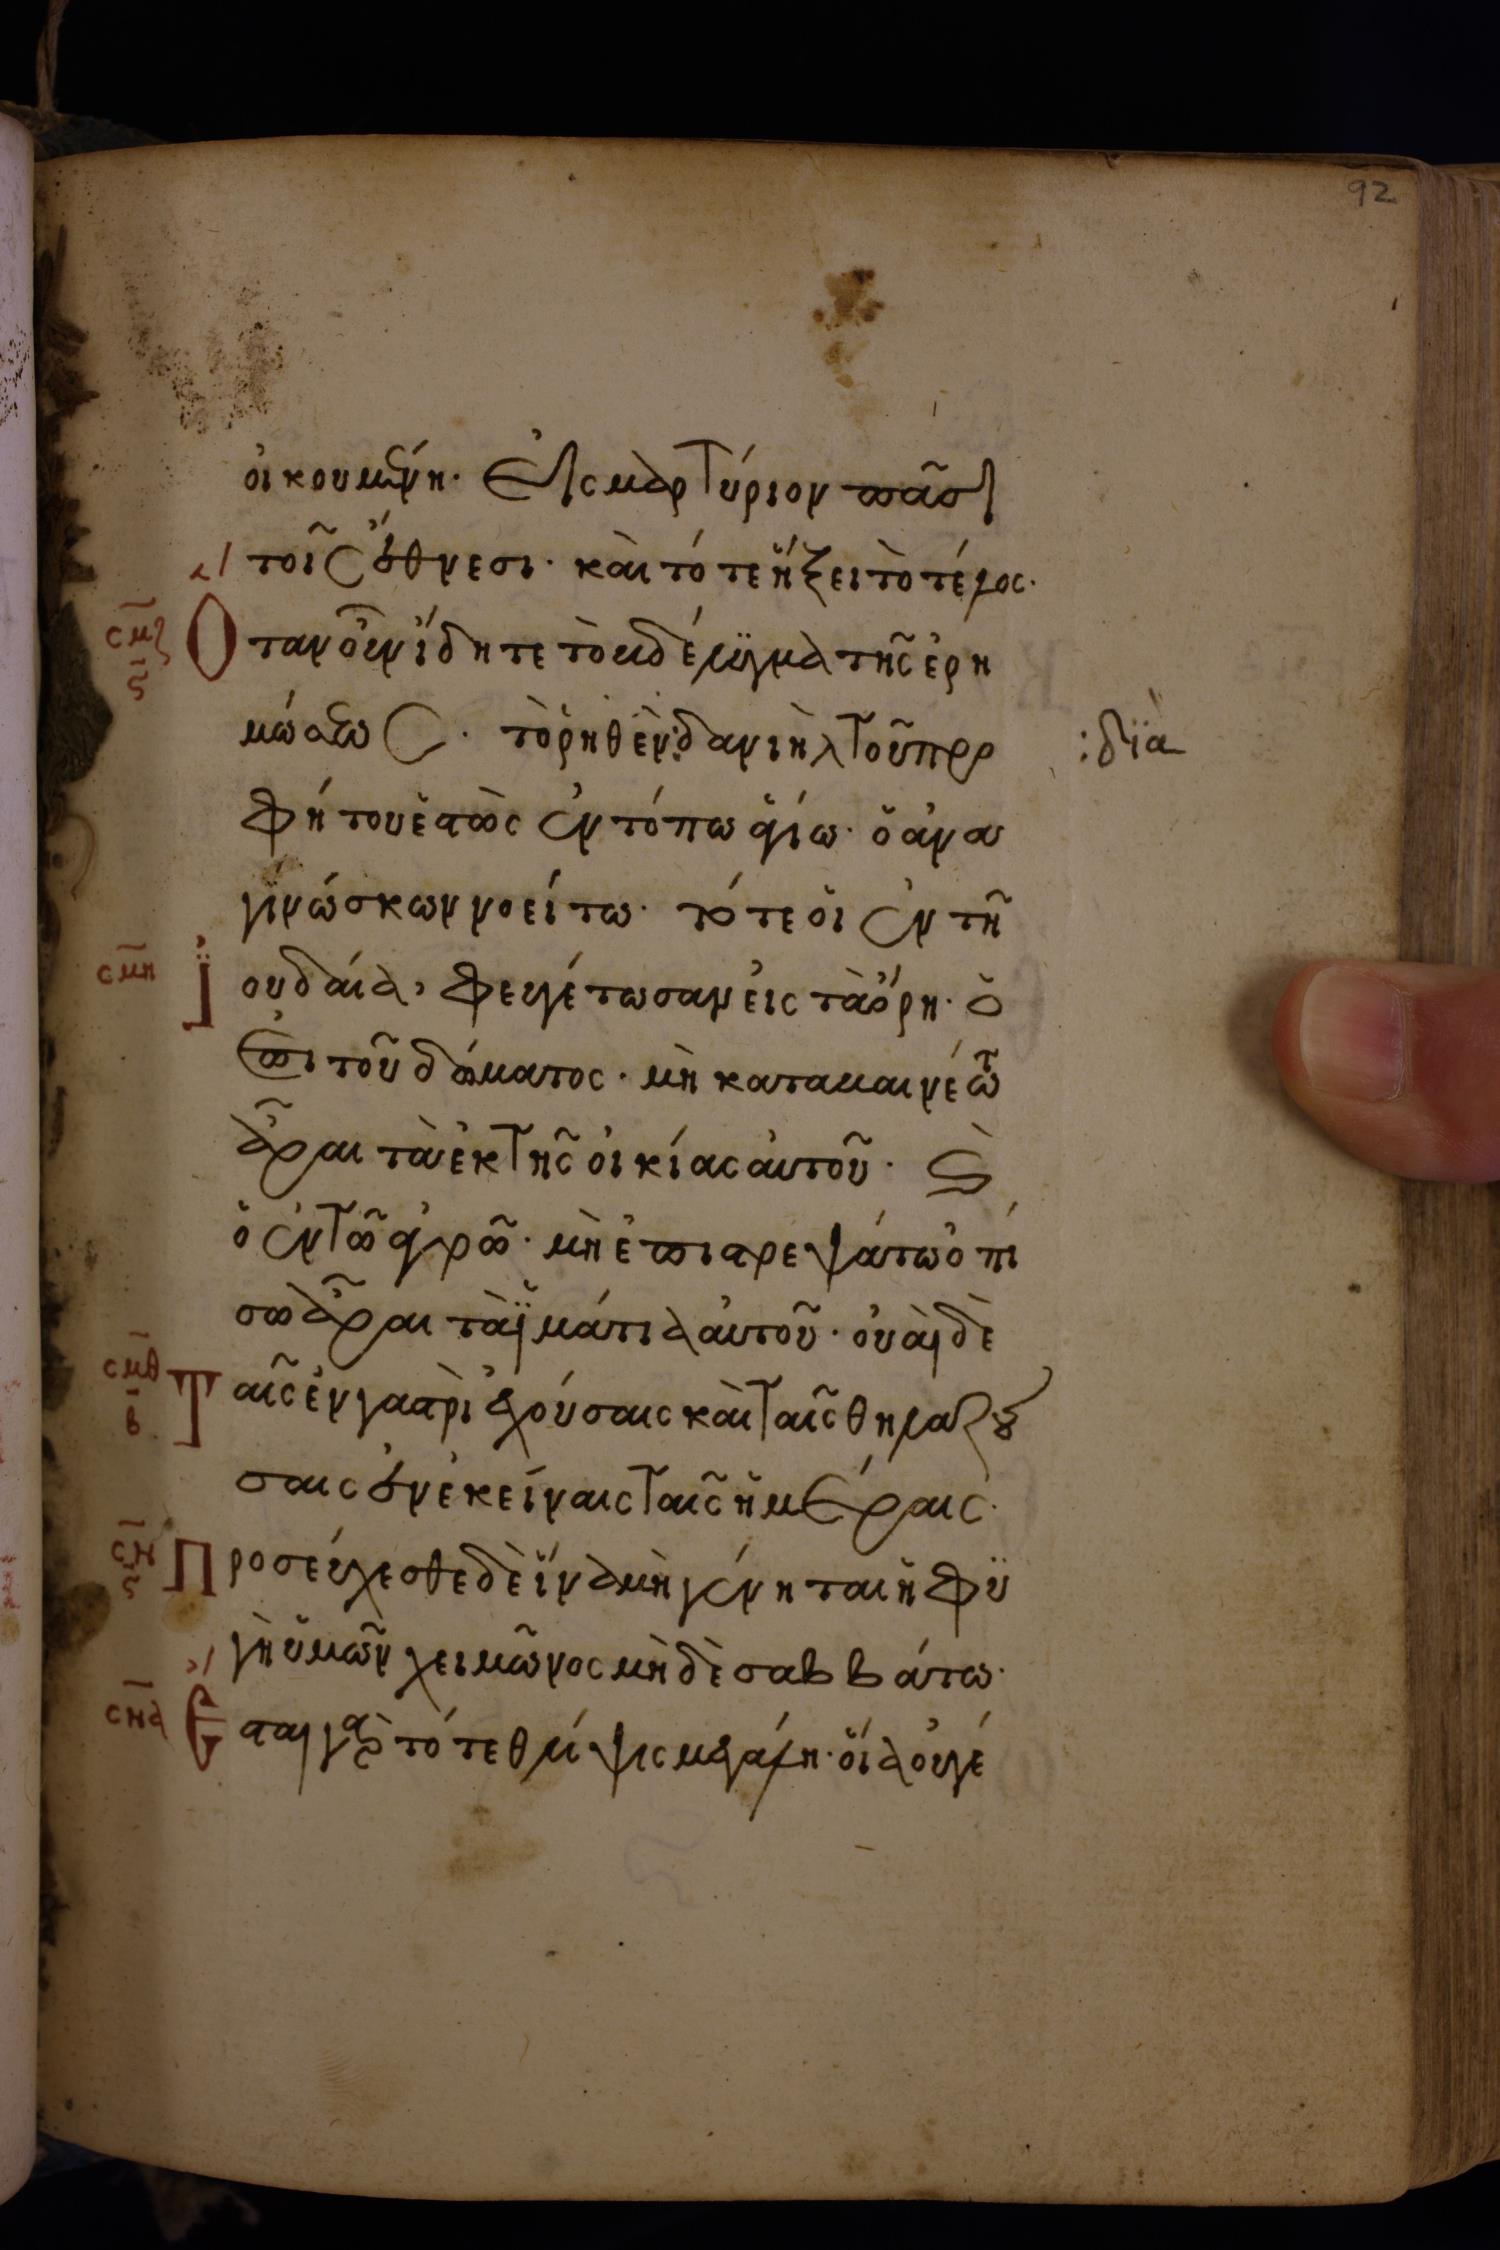 92
οἰκουμένη· εἰς μαρτύριον πᾶσι
τοῖς ἔθνεσι· καὶ τότε ἥξει τὸ τέλος·
σμζ ς Ὅταν οὖν ἴδητε τὸ βδέλυγμα τῆς ἐρη
μώσεως· τὸ ῥηθὲν : δανιὴλ τοῦ προ
:δϊὰ
φήτου ἑστὼς ἐν τόπω ἁγίω· ὁ ἀνα
γινώσκων νοείτω· τότε οἱ ἐν τῆ
σμη Ἰουδαία, φευγέτωσαν εἰς τὰ ὄρη· ὁ
ἐπὶ τοῦ δώματος· μὴ καταβαινέτω
ἆραι τὰ ἐκ τῆς οἰκίας αὐτοῦ· καὶ
ὁ ἐν τῶ ἀγρῶ· μὴ ἐπιστρεψάτω ὀπί
σω ἆραι τὰ ἱμάτια αὐτοῦ· οὐαὶ δὲ
σμθ β Ταῖς ἐν γαστρὶ ἐχούσαις καὶ ταῖς θηλαζού
σαις ἐν ἐκείναις ταῖς ἡμέραις·
σν ς Προσεύχεσθε δὲ ἵνα μὴ γένηται ἡ φυ
γὴ ὑμῶν χειμῶνος μὴ δὲ σαββάτω·
σνα Ἔσται γὰρ τότε θλίψις μεγάλη· οἵα οὐ γέ